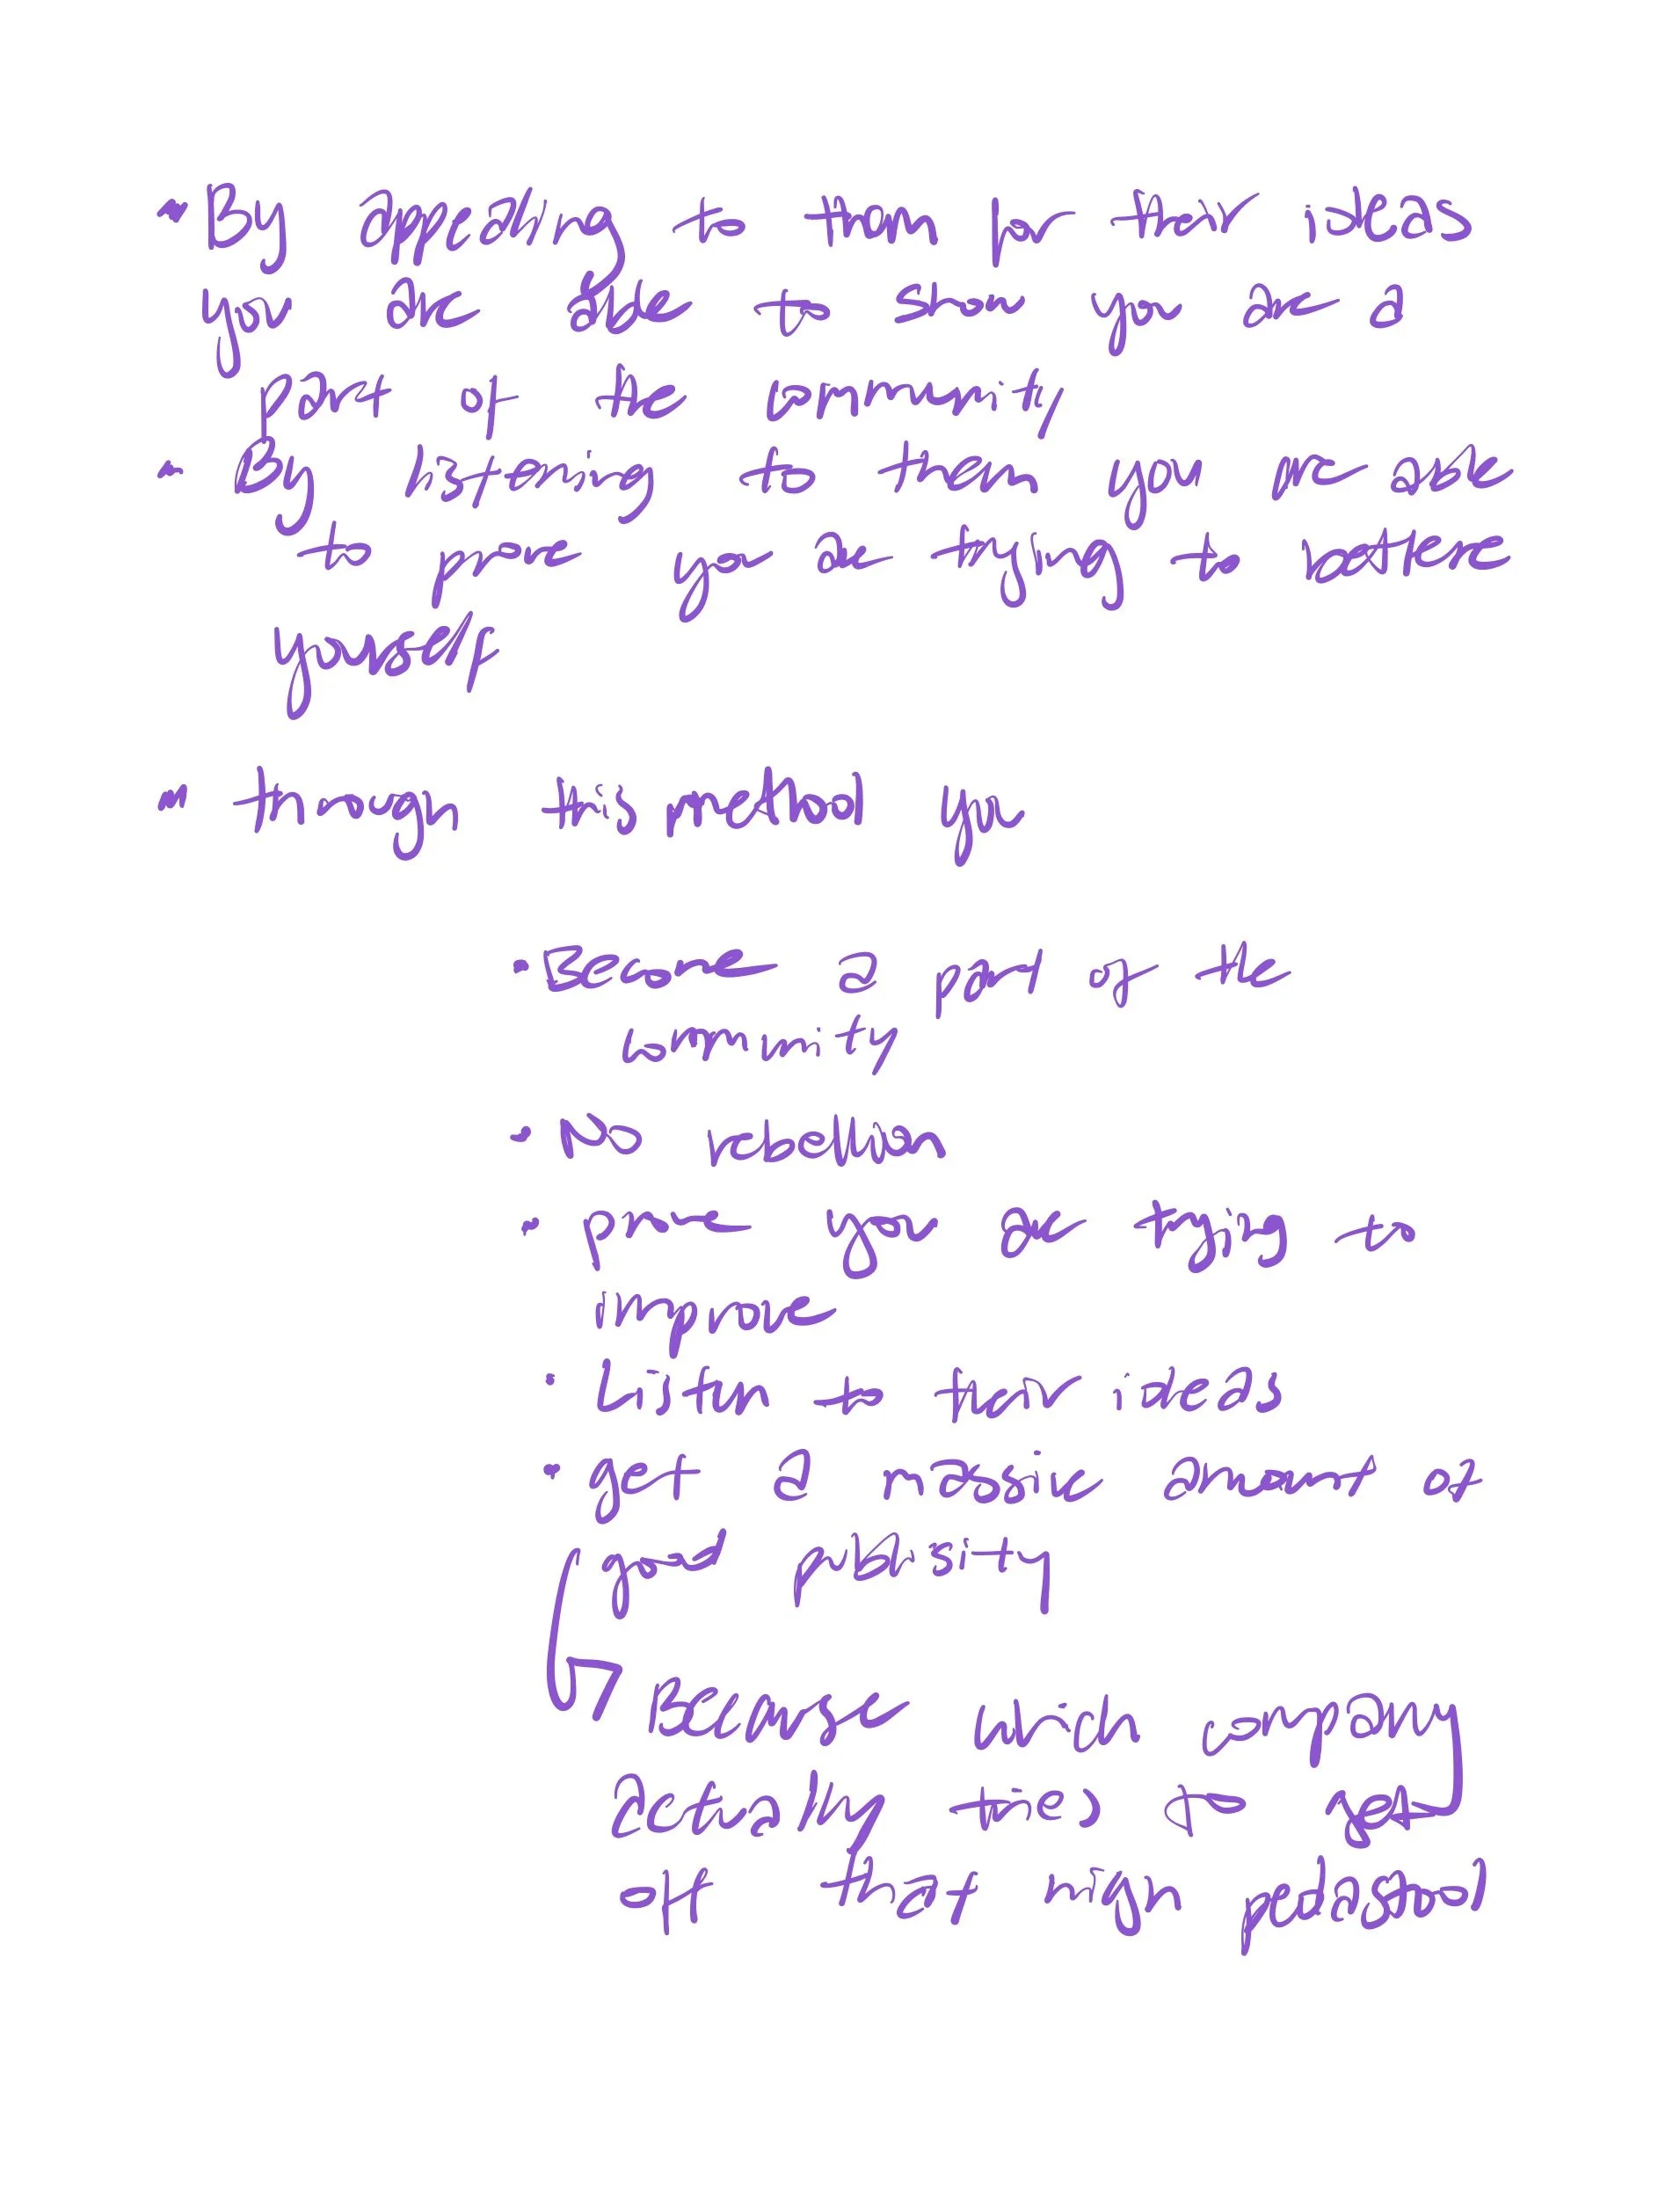 • By appealing to them for their ideas
you are able to show you are a
part of the community
• By listening to them you are able
to prove you are trying to bettere
yourself
• through this method you
• Become a part of the
community
• No rebellion
• prove you are trying to
improve
• Listen to their ideas
• get a massive amount of
good publisity
Because which company
actually tries to get
off that high pedastool